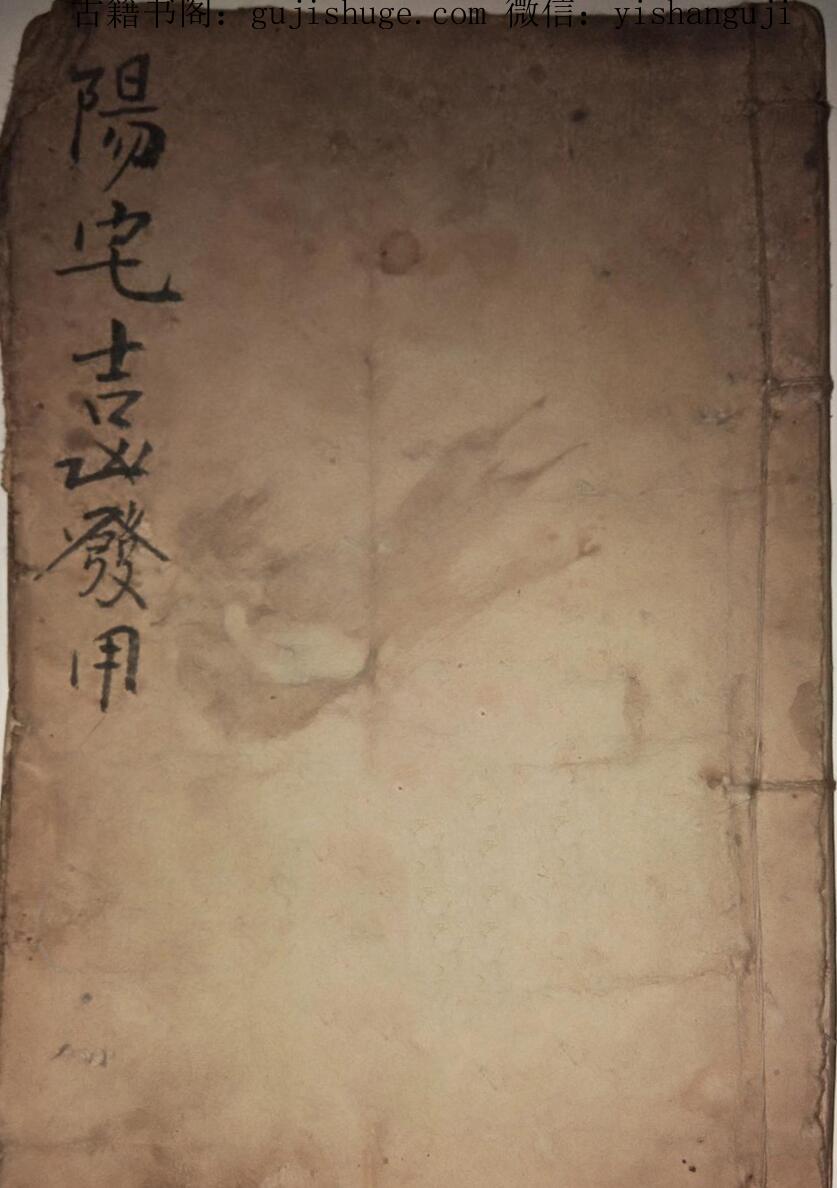 古籍书阁：gujishuge.com 微信：yishanguji
陽宅吉凶發用